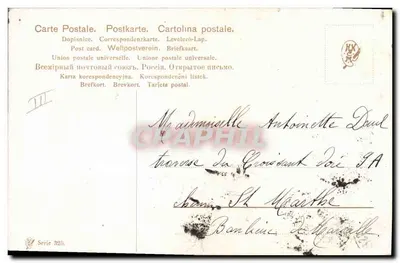 Carte Postale. Postkarte. Cartolina postale.
Dopisnice. Correspondenzkarte. Levelezö-Lap.
Post card. Weltpostverein. Briefkaart.
Union postale universelle. Unione postale universale.
Всемірный почтовый союзъ. Россія. Открытое письмо.
Karta korespondencyjna. Korespondenčni listek.
Brefkort. Brevkort. Tarjeta postal.
III
CPAPHIL.COM
Mademoiselle Antoinette
traverse du Croissant
chemin St Marthe
Banlieue de Marseille
Serie